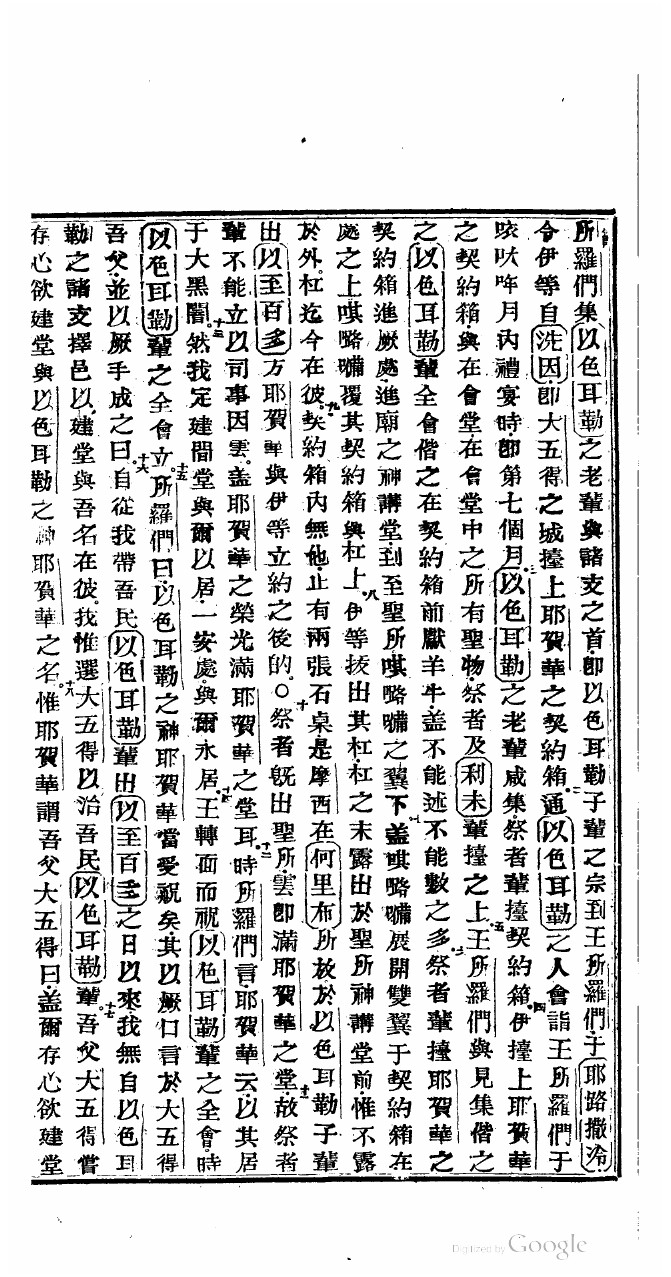 所羅們集以色耳勒之老輩與諸支之首即以色耳勒子輩之宗到王所羅們于耶路撒冷
令伊等自洗因即大五得之城擡上耶賀華之契約箱通以色耳勒之人會詣王所羅們于
月內禮宴時即第七個月以色耳勒之老輩咸集祭者輩擡契約箱伊擡上耶賀華
之契約箱與在會堂在會堂中之所有聖物祭者及利未輩擡之上王所羅們與見集偕之
之以色耳勒輩全會偕之在契約箱前獻羊牛蓋不能述不能數之多祭者輩擡耶賀華之
契約箱進厥處進廟之神講堂到至聖所㖵嚕囇之翼下蓋㖵嚕囇展開雙翼于契約箱在
處之上㖵嚕囇覆其契約箱與杠上伊等拔出其杠杠之末露出於聖所神講堂前惟不露
於外杠迄今在彼契約箱內無他止有兩張石桌是摩西在何里布所放於以色耳勒子輩
出以至百多方耶賀華與伊等立約之後的〇祭者既出聖所雲即滿耶賀華之堂故祭者
輩不能立以司事因雲蓋耶賀華之榮光滿耶賀華之堂耳時所羅們言耶賀華云以其居
于大黑闇然我定建間堂與爾以居一安處與爾永居王轉面而祝以色耳勒輩之全會時
以色耳勒輩之全會立所羅們曰以色耳勒之神耶賀華當受祝矣其以厥口言於大五得
吾父並以厥手成之曰自從我帶吾民以色耳勒輩出以至百多之日以來我無自以色耳
勒之諸支擇邑以建堂與吾名在彼我惟選大五得以治吾民以色耳勒輩吾父大五得嘗
存心欲建堂與以色耳勒之神耶賀華之名惟耶賀華謂吾父大五得曰蓋爾存心欲建堂
Digitized by Google